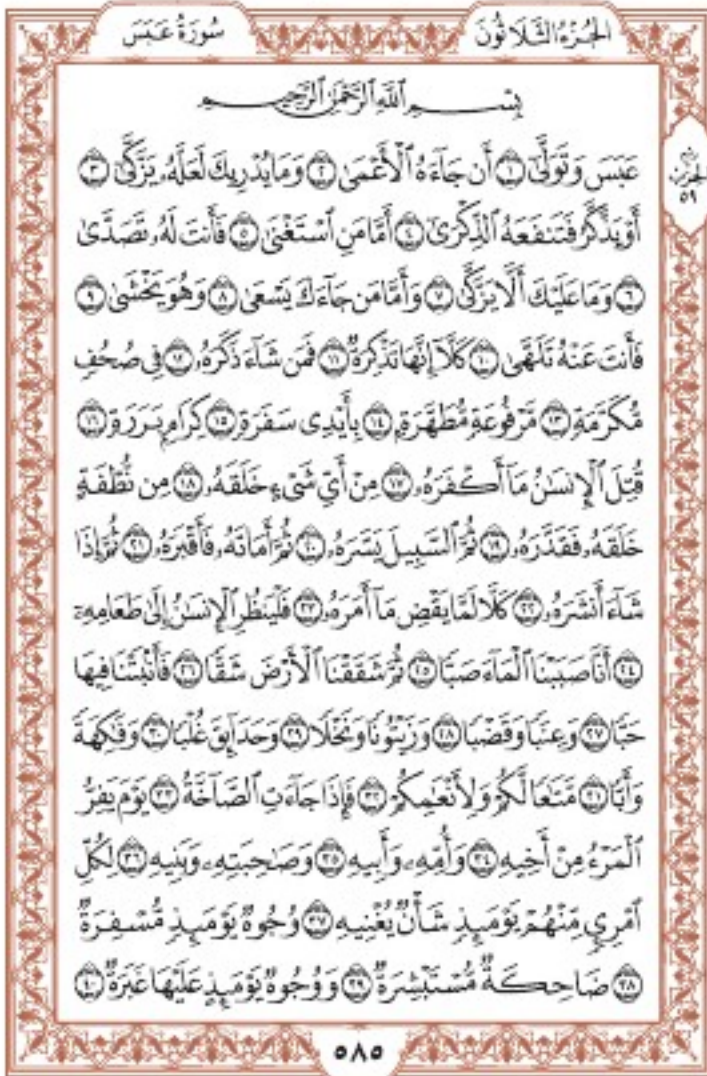 الجُزْءُ الثَّلَاثُونَ
سُورَةُ عَبَسَ
بِسْمِ ٱللَّهِ ٱلرَّحْمَٰنِ ٱلرَّحِيمِ
عَبَسَ وَتَوَلَّىٰٓ ١ أَن جَآءَهُ ٱلْأَعْمَىٰ ٢ وَمَا يُدْرِيكَ لَعَلَّهُۥ يَزَّكَّىٰٓ ٣
أَوْ يَذَّكَّرُ فَتَنفَعَهُ ٱلذِّكْرَىٰٓ ٤ أَمَّا مَنِ ٱسْتَغْنَىٰ ٥ فَأَنتَ لَهُۥ تَصَدَّىٰ
٦ وَمَا عَلَيْكَ أَلَّا يَزَّكَّىٰ ٧ وَأَمَّا مَن جَآءَكَ يَسْعَىٰ ٨ وَهُوَ يَخْشَىٰ ٩
فَأَنتَ عَنْهُ تَلَهَّىٰ ١٠ كَلَّآ إِنَّهَا تَذْكِرَةٌ ١١ فَمَن شَآءَ ذَكَرَهُۥ ١٢ فِى صُحُفٍ
مُّكَرَّمَةٍ ١٣ مَّرْفُوعَةٍ مُّطَهَّرَةٍۭ ١٤ بِأَيْدِى سَفَرَةٍ ١٥ كِرَامٍۭ بَرَرَةٍ ١٦
قُتِلَ ٱلْإِنسَٰنُ مَآ أَكْفَرَهُۥ ١٧ مِنْ أَىِّ شَىْءٍ خَلَقَهُۥ ١٨ مِن نُّطْفَةٍ
خَلَقَهُۥ فَقَدَّرَهُۥ ١٩ ثُمَّ ٱلسَّبِيلَ يَسَّرَهُۥ ٢٠ ثُمَّ أَمَاتَهُۥ فَأَقْبَرَهُۥ ٢١ ثُمَّ إِذَا
شَآءَ أَنشَرَهُۥ ٢٢ كَلَّا لَمَّا يَقْضِ مَآ أَمَرَهُۥ ٢٣ فَلْيَنظُرِ ٱلْإِنسَٰنُ إِلَىٰ طَعَامِهِۦٓ
٢٤ أَنَّا صَبَبْنَا ٱلْمَآءَ صَبًّا ٢٥ ثُمَّ شَقَقْنَا ٱلْأَرْضَ شَقًّا ٢٦ فَأَنۢبَتْنَا فِيهَا
حَبًّا ٢٧ وَعِنَبًا وَقَضْبًا ٢٨ وَزَيْتُونًا وَنَخْلًا ٢٩ وَحَدَآئِقَ غُلْبًا ٣٠ وَفَٰكِهَةً
وَأَبًّا ٣١ مَّتَٰعًا لَّكُمْ وَلِأَنْعَٰمِكُمْ ٣٢ فَإِذَا جَآءَتِ ٱلصَّآخَّةُ ٣٣ يَوْمَ يَفِرُّ
ٱلْمَرْءُ مِنْ أَخِيهِ ٣٤ وَأُمِّهِۦ وَأَبِيهِ ٣٥ وَصَٰحِبَتِهِۦ وَبَنِيهِ ٣٦ لِكُلِّ
ٱمْرِئٍ مِّنْهُمْ يَوْمَئِذٍ شَأْنٌ يُغْنِيهِ ٣٧ وُجُوهٌ يَوْمَئِذٍ مُّسْفِرَةٌ
٣٨ ضَاحِكَةٌ مُّسْتَبْشِرَةٌ ٣٩ وَوُجُوهٌ يَوْمَئِذٍ عَلَيْهَا غَبَرَةٌ ٤٠
الحزب
٥٩
٥٨٥